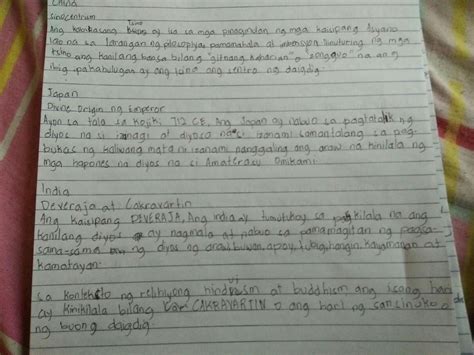 China
Sinocentrism
Ang kaisipang Tsino ay isa sa mga pinagyaman ng mga kaisipang Asyano
lalo na sa larangan ng pilosopiya, pamamahala at imbensyon. Itinuturing ng mga
Tsino ang kanilang bansa bilang "gitnang kaharian" o "zongguo" na ang
ibig ipakahulugan ay ang Tsina ang sentro ng daigdig.
Japan
Divine Origin ng Emperor
Ayon sa tala sa Kojiki, 712 CE, Ang Japan ay nabuo sa pagtatalik ng
diyos na si Izanagi at diyosa na si Izanami samantalang sa pag-
bukas ng kaliwang mata ni Izanami nanggaling ang araw na kinilala ng
mga hapones na diyos na si Amaterasu Omikami
India
Deveraja at Cakravartin
Ang kaisipang DEVERAJA, Ang india ay tumutukoy sa pagkilala na ang
kanilang diyos ay nagmula at nabuo sa pamamagitan ng pagsa-
sama-sama ng diyos ng araw, buwan, apoy, tubig, hangin, kayamanan at
kamatayan.
sa konteksto ng relihiyong hinduism at buddhism ang isang hari
ay kinikilala bilang CAKRAVARTIN o ang hari ng sansinuko
ng buong daigdig.